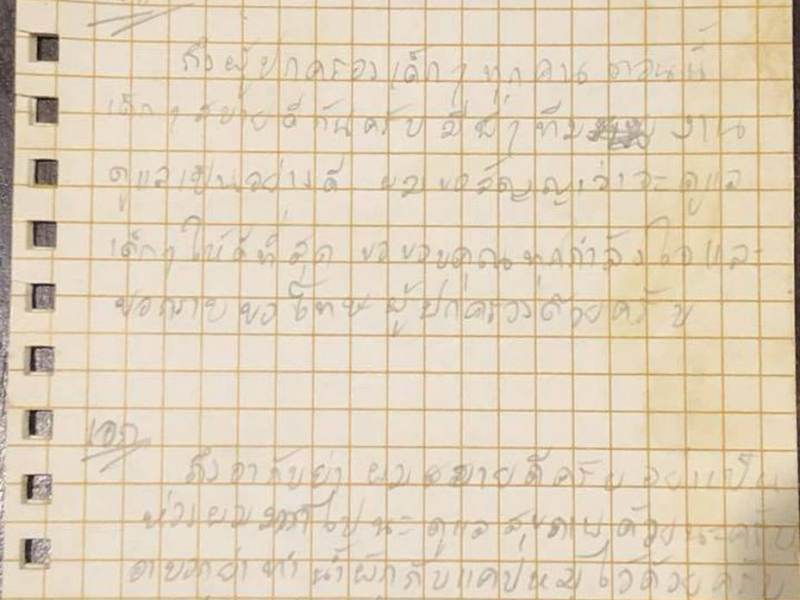 ถึงผู้ปกครองเด็กๆ ทุกคน ตอนนี้
เด็กๆ สบายดีกันครับ มีพี่ๆ ทีม งาน
ดูแลเป็นอย่างดี ผมขอสัญญาว่าจะดูแล
เด็กๆ ให้ดีที่สุด ขอขอบคุณทุกกำลังใจและ
ขอกราบขอโทษผู้ปกครองด้วยครับ
เอก
ถึงอากับย่า ผมสบายดีครับ อย่าเป็น
ห่วงผม ไปนะ ดูแลสุขภาพด้วยนะครับ
ย่าทำน้ำผักกับแคปหมูไว้ด้วยครับ